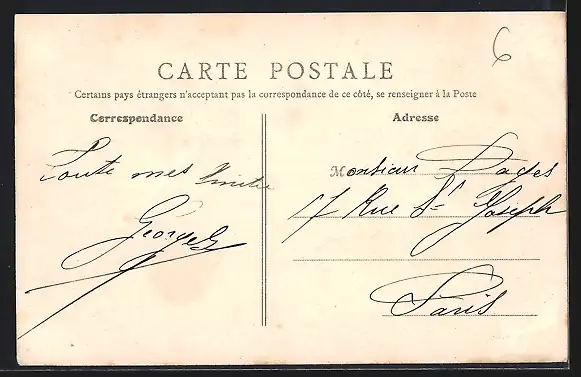 6
CARTE POSTALE
Certains pays étrangers n'acceptant pas la correspondance de ce côté, se renseigner à la Poste
Correspondance
Toute mes
Georges
Adresse
Monsieur Pages
17 Rue St Joseph
Paris